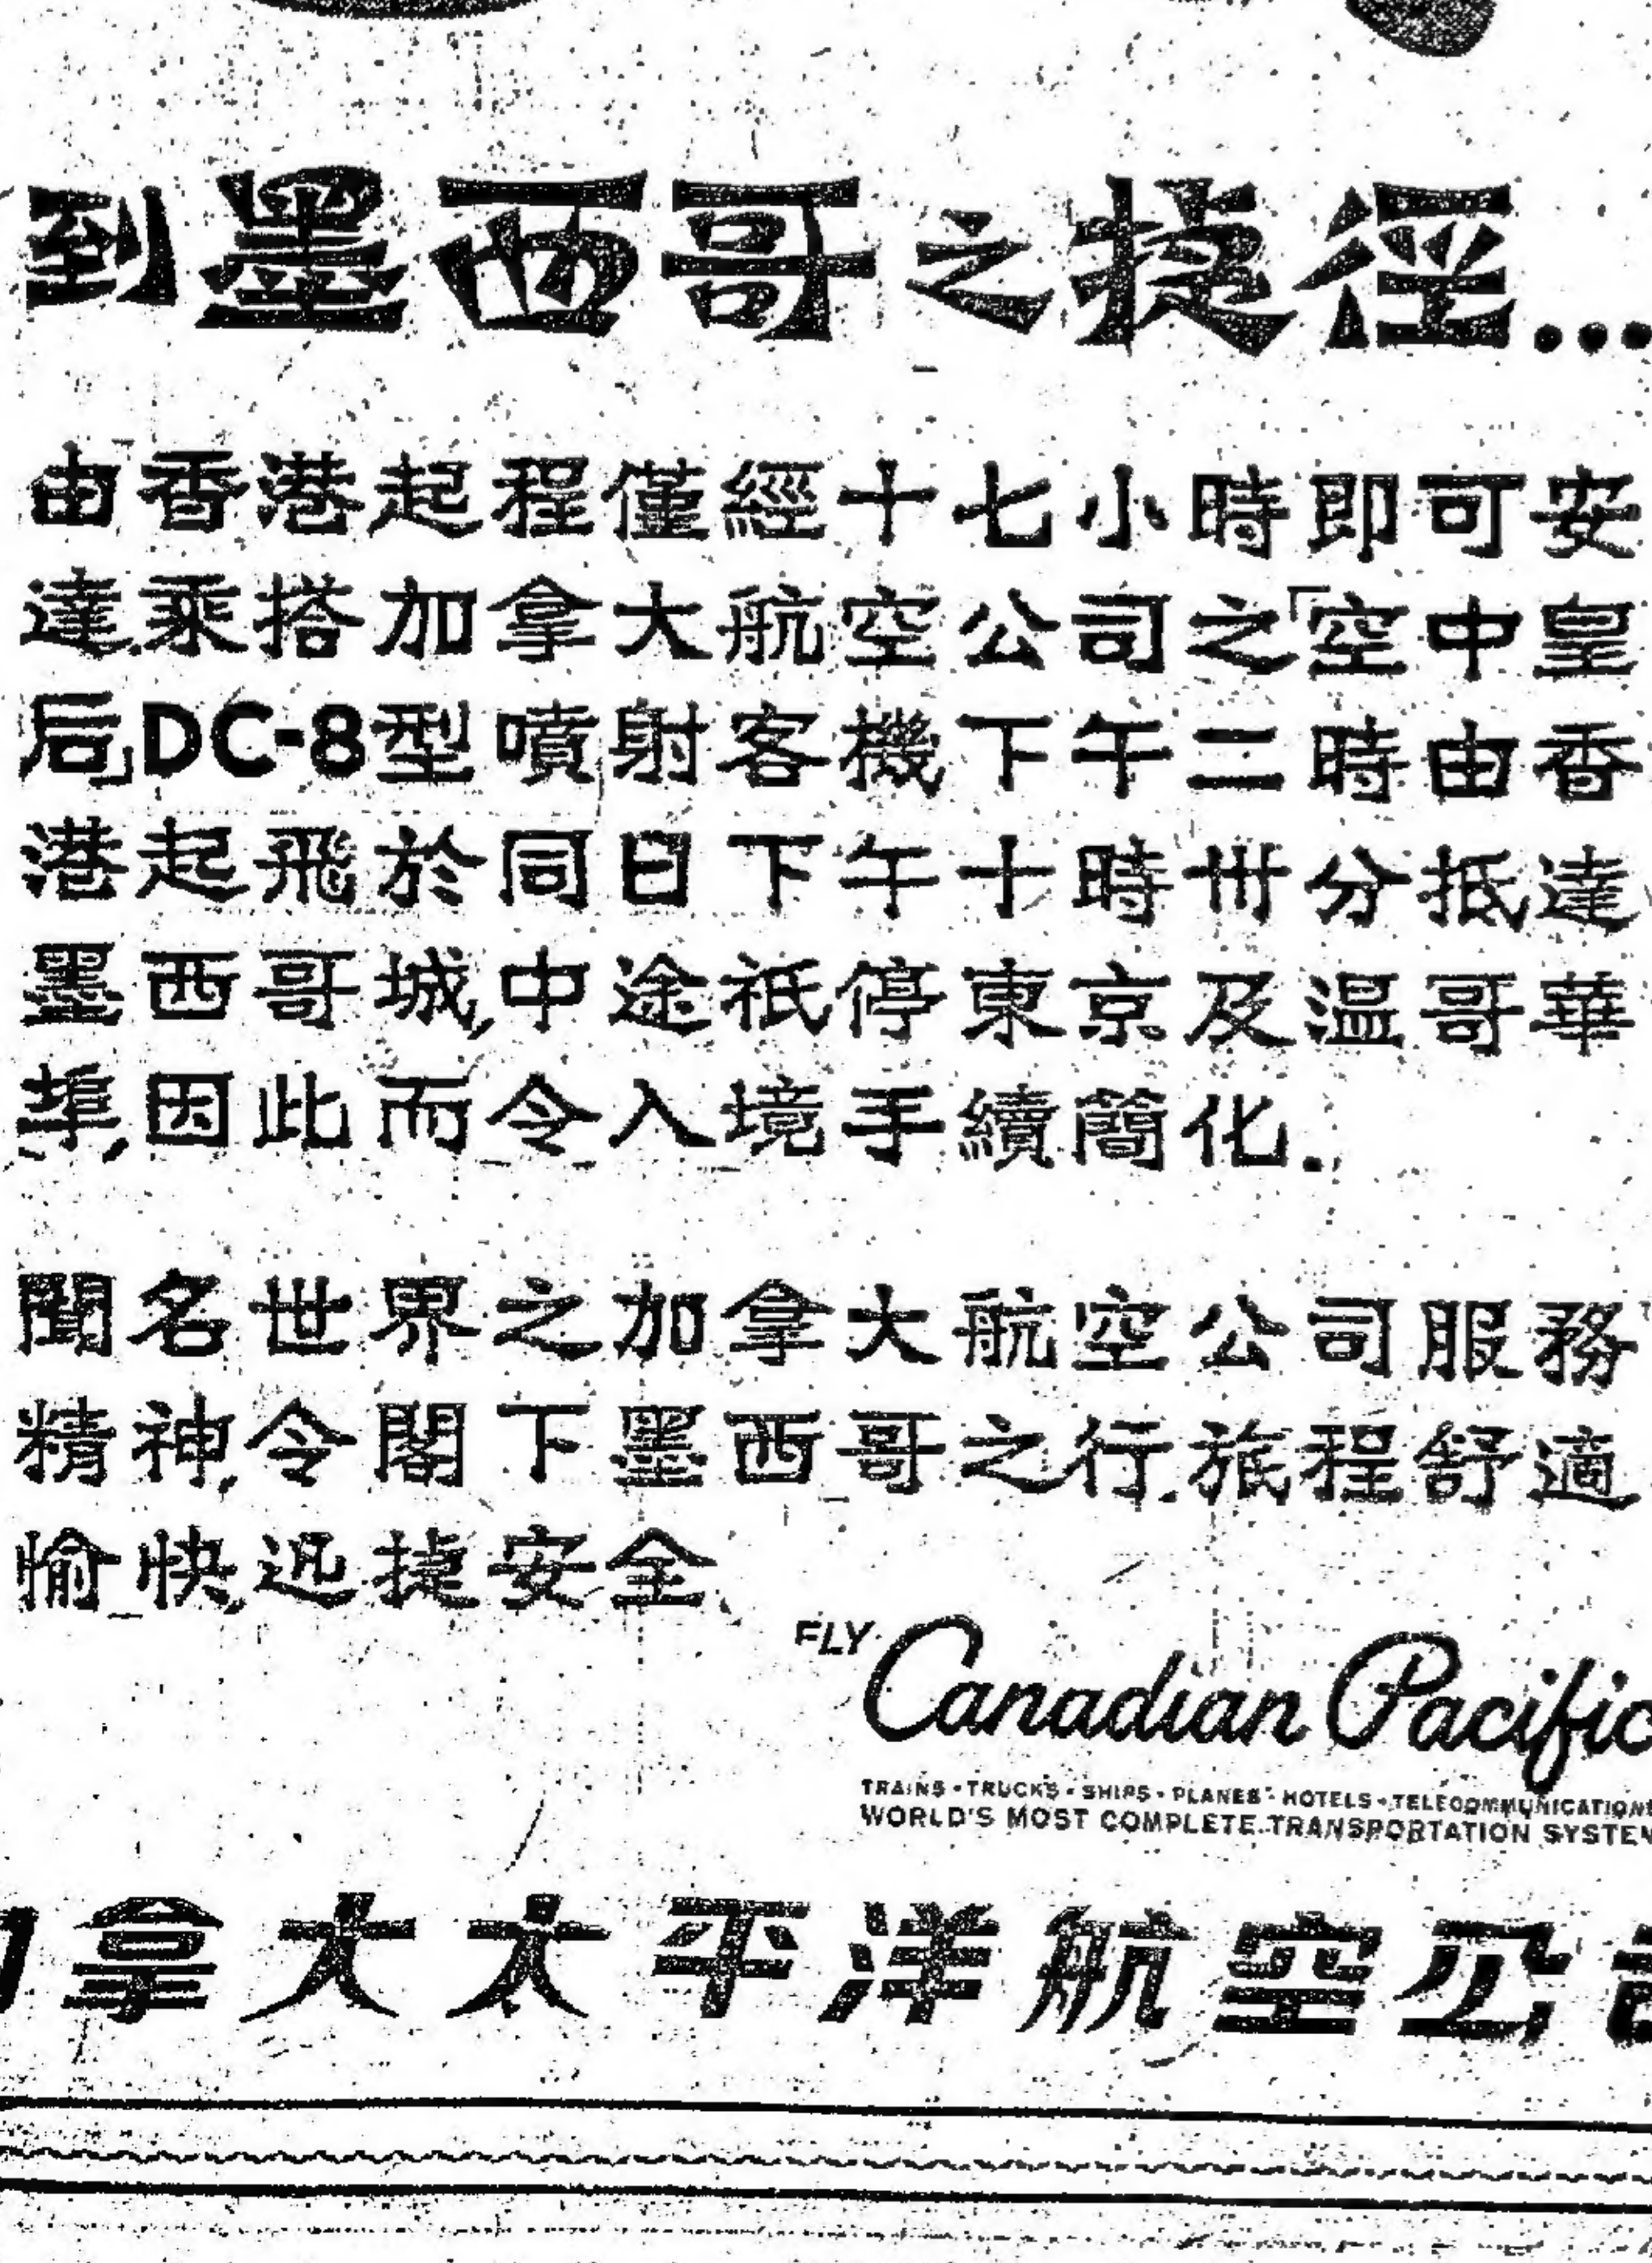 到墨西哥之捷徑...
由香港起程僅經十七小時即可安
達.乘搭加拿大航空公司之「空中皇
后」DC-8型噴射客機下午二時由香
港起飛於同日下午十時卅分抵達
墨西哥城,中途祇停東京及温哥華
埠,因此而令入境手續簡化.
聞名世界之加拿大航空公司服務
精神,令閣下墨西哥之行.旅程舒適
愉快,迅捷安全.
FLY Canadian Pacific
TRAINS · TRUCKS · SHIPS · PLANES · HOTELS · TELECOMMUNICATIONS
WORLD'S MOST COMPLETE TRANSPORTATION SYSTEM
加拿大太平洋航空公司